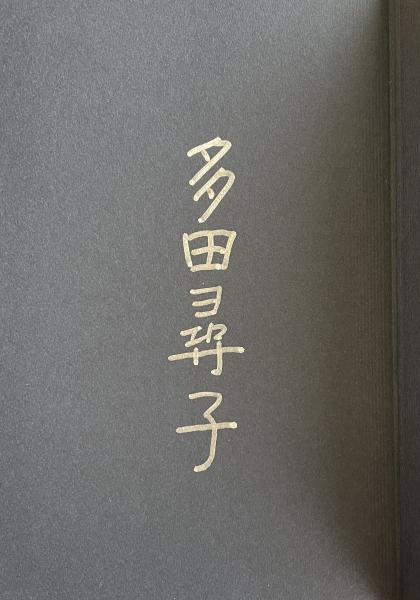 多田尋子